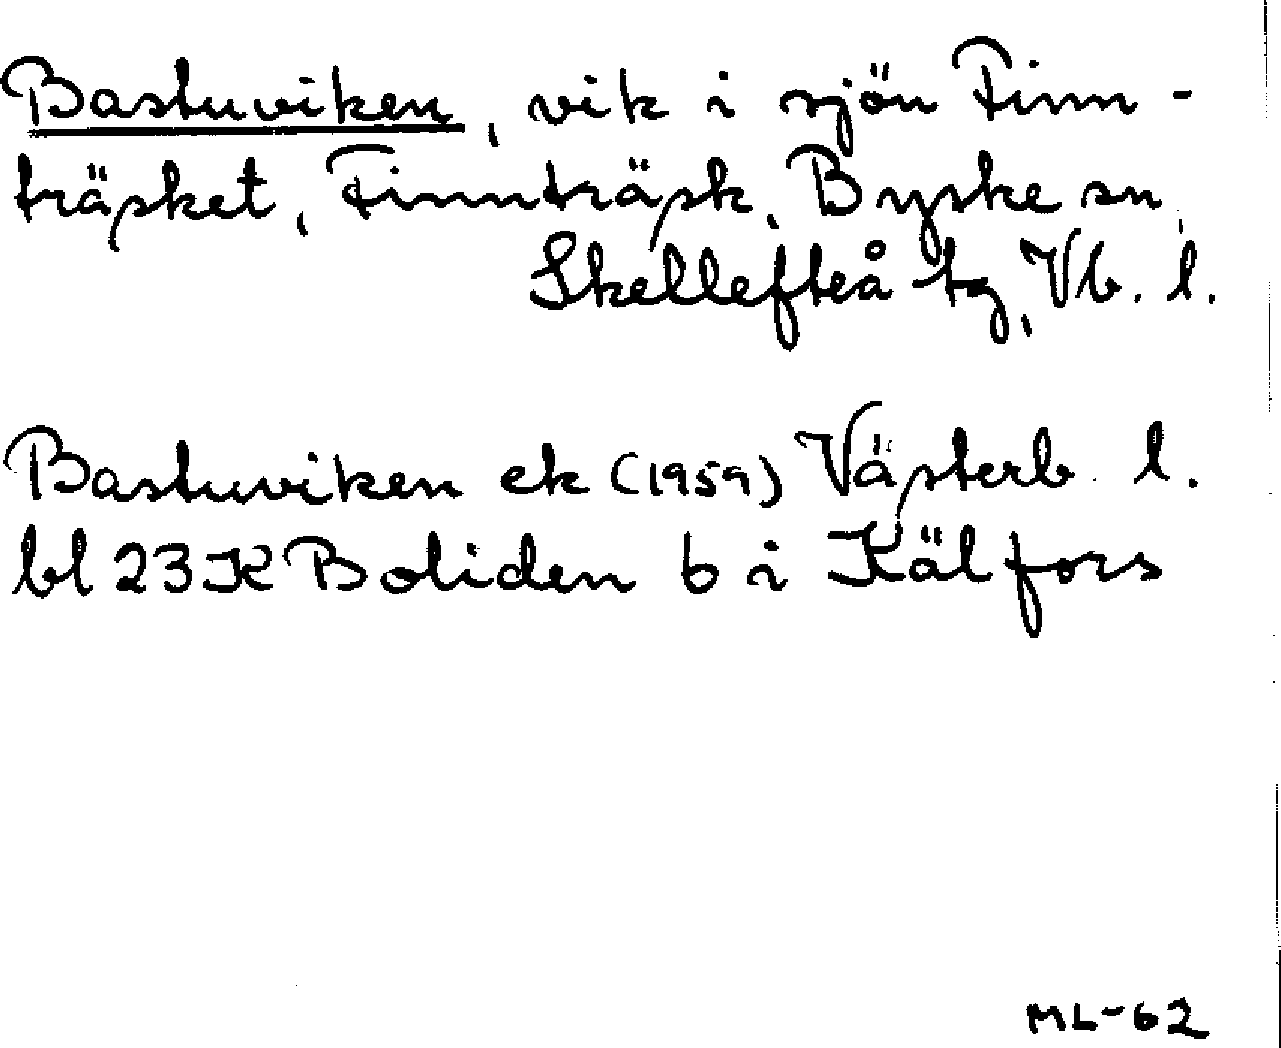 Bastuviken, vik i sjön Finn-
träsket, Finnträsk, Byske sn,
Skellefteå tg, Vb. l.
Bastuviken ek (1959) Västerb. l.
bl 23 K Boliden 6 i Källfors
ML-62